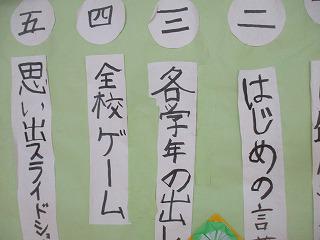 二
はじめの言
三
各学年の出し
四
全校ゲーム
五
思い出スライドショ